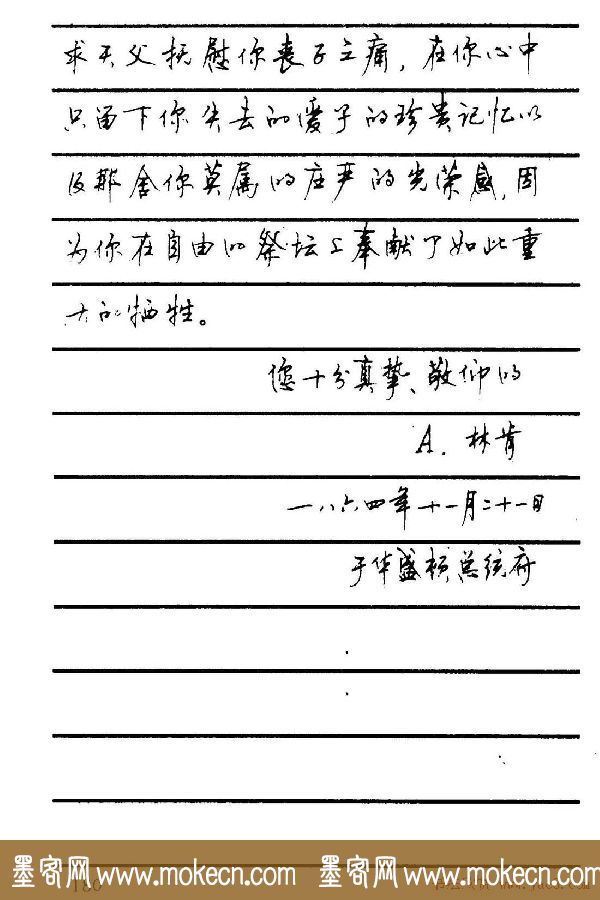 求天父抚慰你丧子之痛，在你心中
只留下你失去的爱子的珍贵记忆以
及那舍你莫属的庄严的光荣感，因
为你在自由的祭坛上奉献了如此重
大的牺牲。
您十分真挚、敬仰的
A. 林肯
一八六四年十一月二十一日
于华盛顿总统府
墨客网 www.mokecn.com 墨客网 www.mokecn.com
180